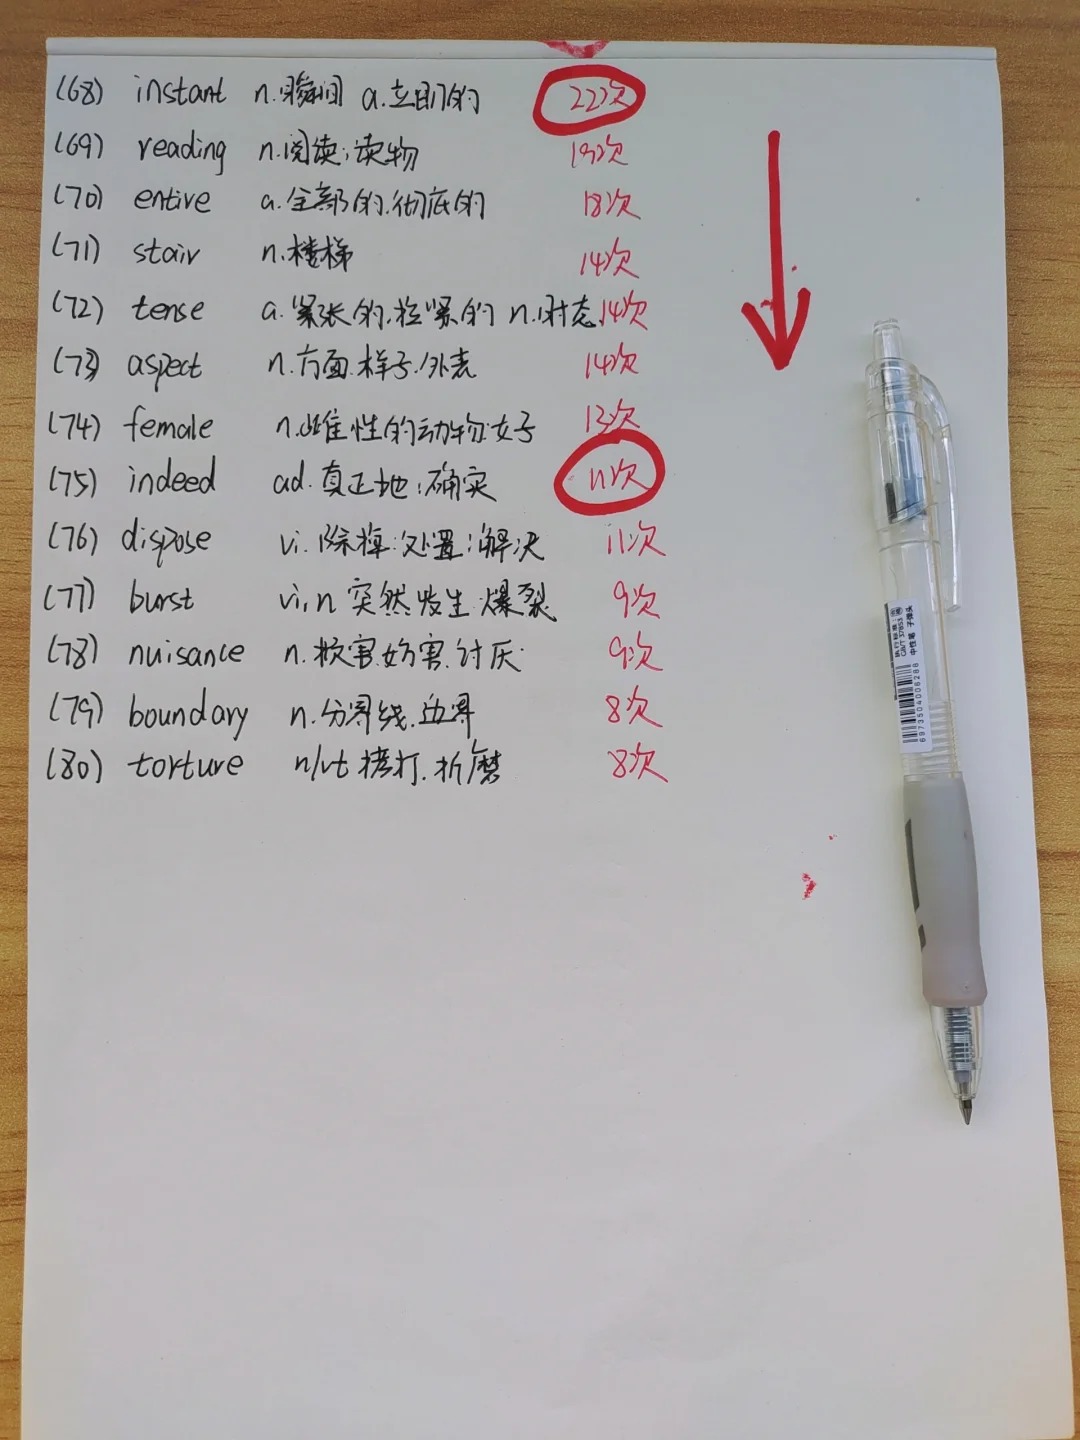 (68) instant n.瞬间 a.立即的 22次
(69) reading n.阅读;读物 19次
(70) entire a.全部的.彻底的 18次
(71) stair n.楼梯 14次
(72) tense a.紧张的.拉紧的 n.时态 14次
(73) aspect n.方面.样子.外表 14次
(74) female n.雌性的动物.女子 13次
(75) indeed ad.真正地;确实 11次
(76) dispose vi.除掉;处置;解决 11次
(77) burst vi,n 突然发生.爆裂 9次
(78) nuisance n.损害.妨害.讨厌. 9次
(79) boundary n.分界线.边界 8次
(80) torture n/vt 拷打.折磨 8次
执行标准:
GB/T 37853
中性笔 子弹头
6973504006286